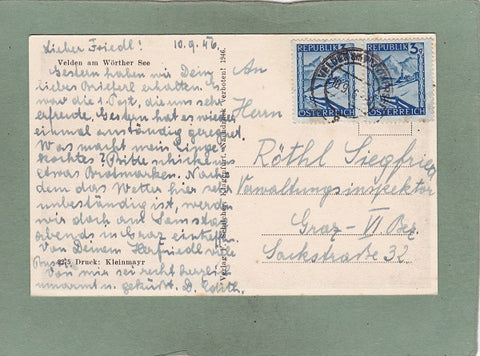 Lieber Friedl! 10.9.46.
Velden am Wörther See
Gestern haben wir Dein
liebes Brieferl erhalten. Es
war die 1. Post, die uns sehr
erfreute. Gestern hat es wieder
einmal anständig geregnet.
Was macht mein Einge-
kochtes? Bitte schicke
etwas Brotmarken. Nach-
dem das Wetter hier sehr
unbeständig ist, werden
wir doch am Samstag
abends in Graz eintreffen.
Von Deinem Herfriedl viele
Bussi
4275 Druck: Kleinmayr
Von mir sei recht herzl.
umarmt u. geküsst. D. Edith.
verboten! 1946.
REPUBLIK
ÖSTERREICH
REPUBLIK 5g
ÖSTERREICH
An
Herrn
Röthl Siegfried
Verwaltungsinspektor
Graz - VI. Bez.
Sackstraße 32